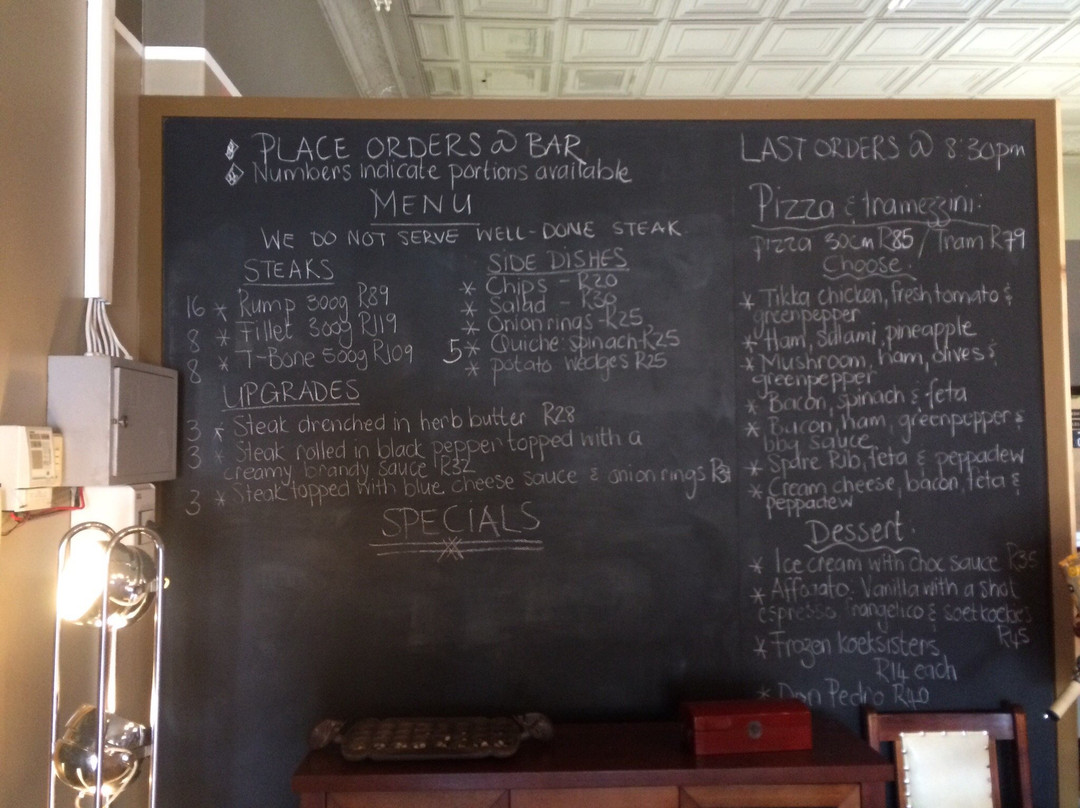 PLACE ORDERS @ BAR
Numbers indicate portions available
MENU
WE DO NOT SERVE WELL-DONE STEAK
STEAKS
16 * Rump 300g R89
8 * Fillet 300g R119
8 * T-Bone 500g R109
SIDE DISHES
* Chips - R20
* Salad - R30
* Onion rings - R25
5 * Quiche: spinach - R25
* potato wedges R25
UPGRADES
3 * Steak drenched in herb butter R28
3 * Steak rolled in black pepper topped with a
creamy brandy sauce R32
3 * Steak topped with blue cheese sauce & onion rings
SPECIALS
LAST ORDERS @ 8:30pm
Pizza & tramezzini:
pizza 30cm R85 / Tram R79
Choose:
* Tikka chicken, fresh tomato &
greenpepper
* Ham, salami, pineapple
* Mushroom, ham, olives &
greenpepper
* Bacon, spinach & feta
* Bacon, ham, greenpepper &
bbq sauce
* Spare Rib, feta & peppadew
* Cream cheese, bacon, feta &
peppadew
Dessert:
* Ice cream with choc sauce R35
* Affogato: Vanilla with a shot
espresso, frangelico & soetkoekies
R45
* Frozen koeksisters
R14 each
* Don Pedro R40